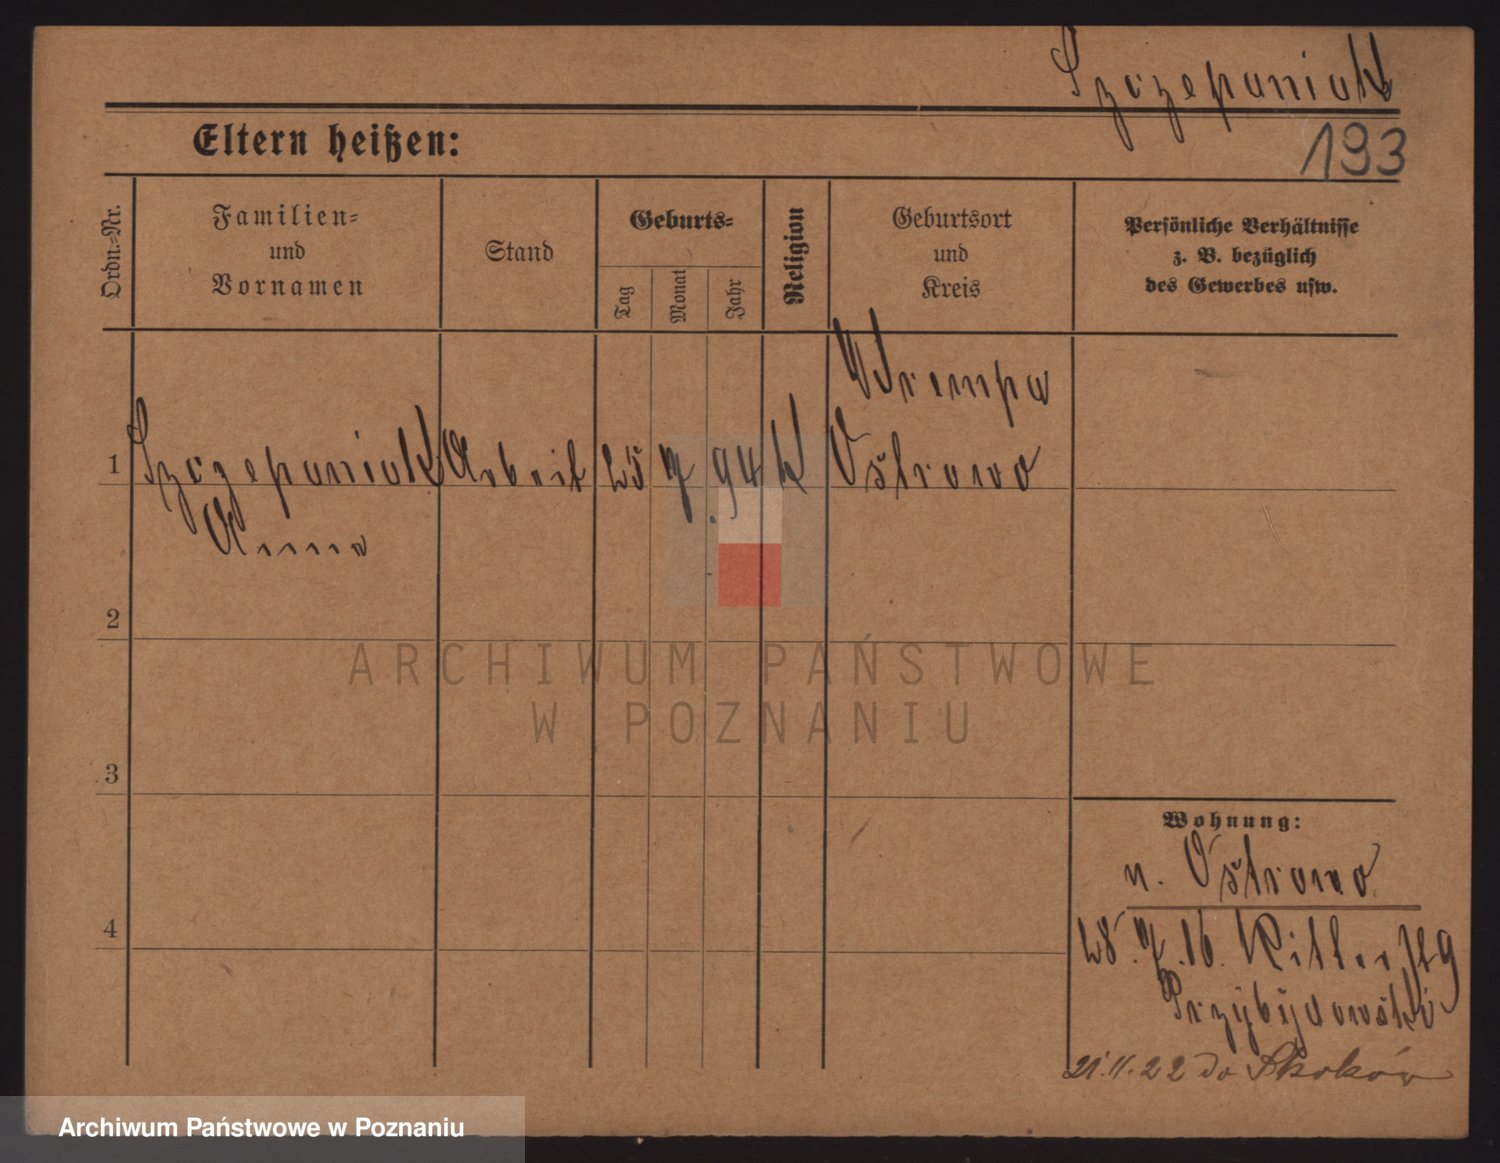 Szczepaniak
193
Eltern heißen:
Ordn.-Nr.
Familien-
und
Vornamen
Stand
Geburts-
Tag
Monat
Jahr
Religion
Geburtsort
und
Kreis
Persönliche Verhältnisse
z. B. bezüglich
des Gewerbes usw.
Wrempa
1 Szczepaniak Arbeit 25 7. 94 K Ostrowo
Anna
2
3
4
ARCHIWUM PAŃSTWOWE
W POZNANIU
Wohnung:
n. Ostrowo
28. 7. 16. Ritterst 9
21.11.22 do Skoków
Archiwum Państwowe w Poznaniu